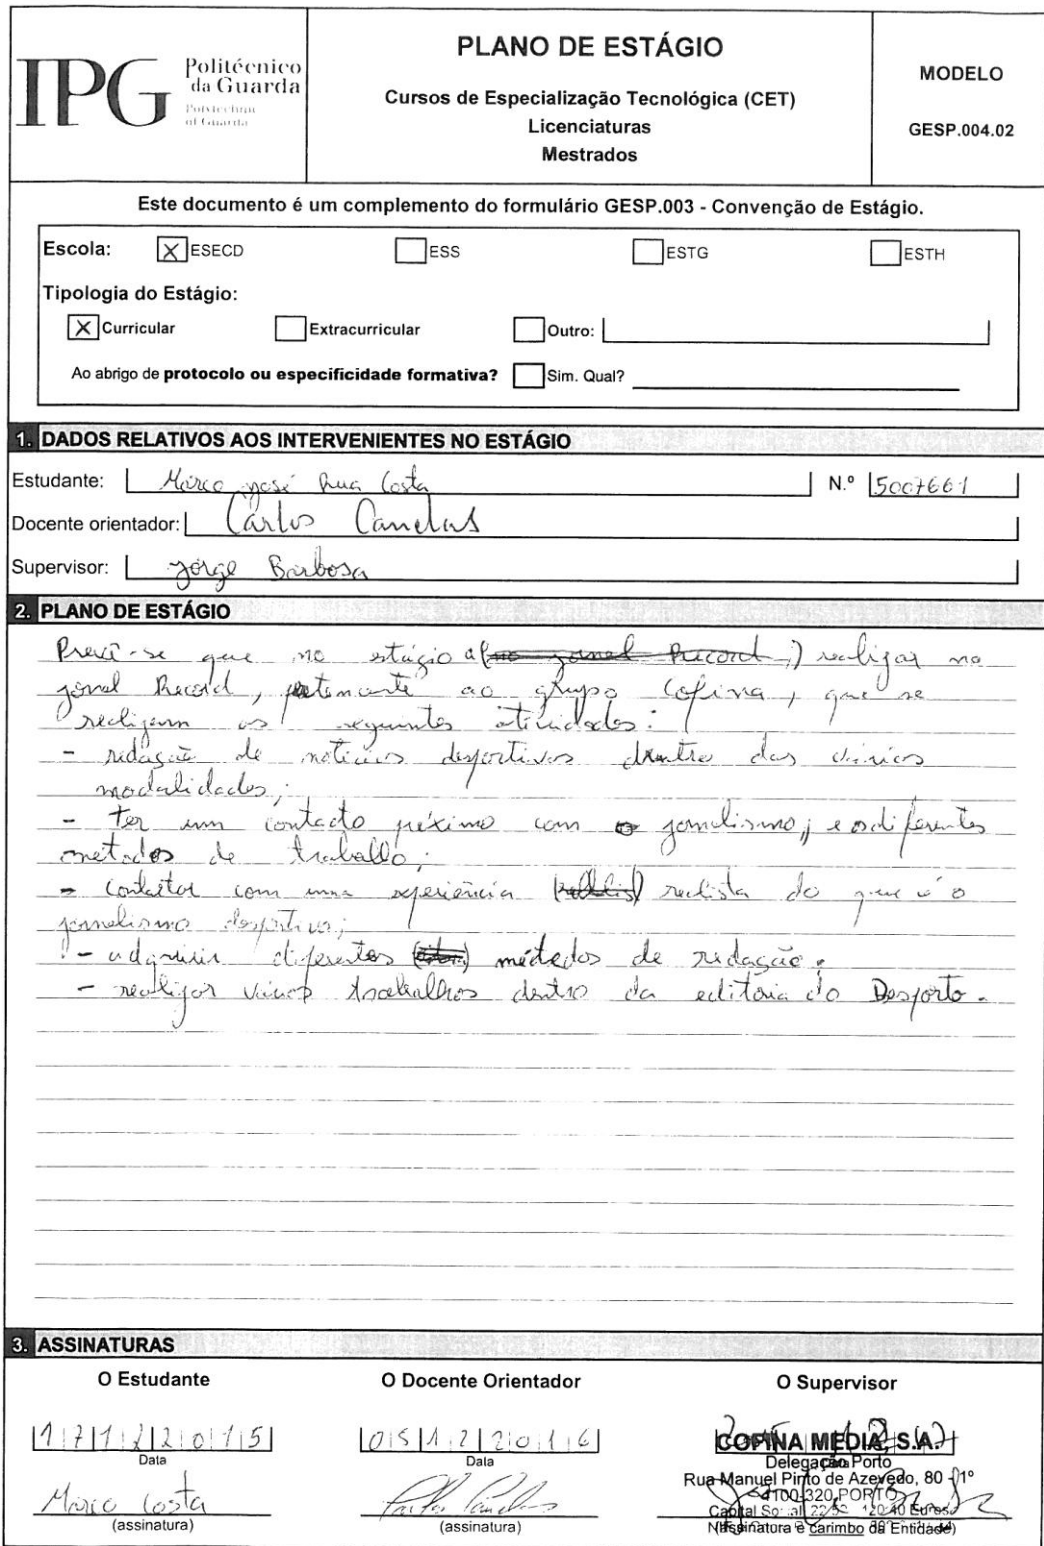 IPG Politécnico
da Guarda
Polytechnic
of Guarda
PLANO DE ESTÁGIO
Cursos de Especialização Tecnológica (CET)
Licenciaturas
Mestrados
MODELO
GESP.004.02
Este documento é um complemento do formulário GESP.003 - Convenção de Estágio.
Escola: X ESECD ESS ESTG ESTH
Tipologia do Estágio:
X Curricular Extracurricular Outro:
Ao abrigo de protocolo ou especificidade formativa? Sim. Qual?
1. DADOS RELATIVOS AOS INTERVENIENTES NO ESTÁGIO
Estudante: Márco José Rua Costa N.º 5007661
Docente orientador: Carlos Canelas
Supervisor: Jorge Barbosa
2. PLANO DE ESTÁGIO
Prevê-se que no estágio a (no jornal Record,) realizar no
jornal Record, pertencente ao grupo Cofina, que se
realizem as seguintes atividades:
- redação de notícias desportivas dentro das várias
modalidades;
- ter um contacto próximo com o jornalismo, e os diferentes
métodos de trabalho;
- contactar com uma experiência realista do que é o
jornalismo desportivo;
- adquirir diferentes métodos de redação;
- realizar vários trabalhos dentro da editoria do Desporto.
3. ASSINATURAS
O Estudante O Docente Orientador O Supervisor
17122015 05122016
Data Data
Márco Costa
(assinatura) (assinatura)
COFINA MEDIA, S.A.
Delegação Porto
Rua Manuel Pinto de Azevedo, 80 - 1º
4100-320 PORTO
Capital Social
(Assinatura e carimbo da Entidade)